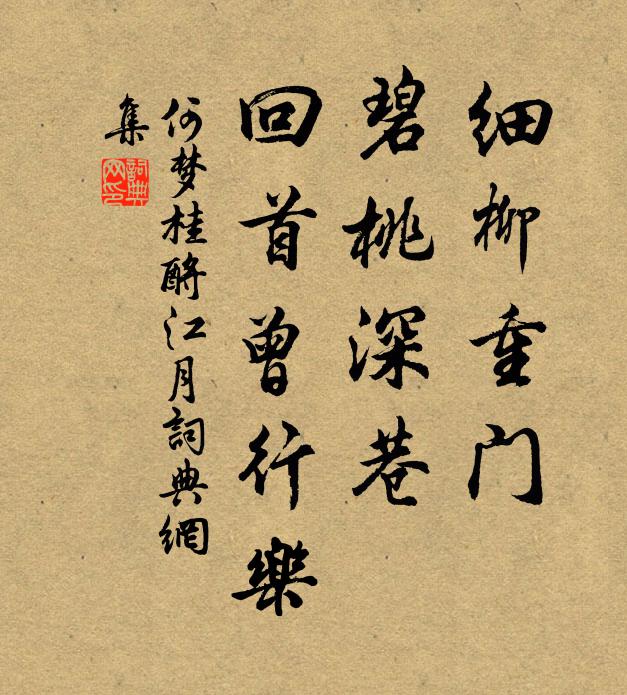 细柳重门
碧桃深巷
回首曾行樂
何梦桂酹江月詞典網
集
詞典
网印